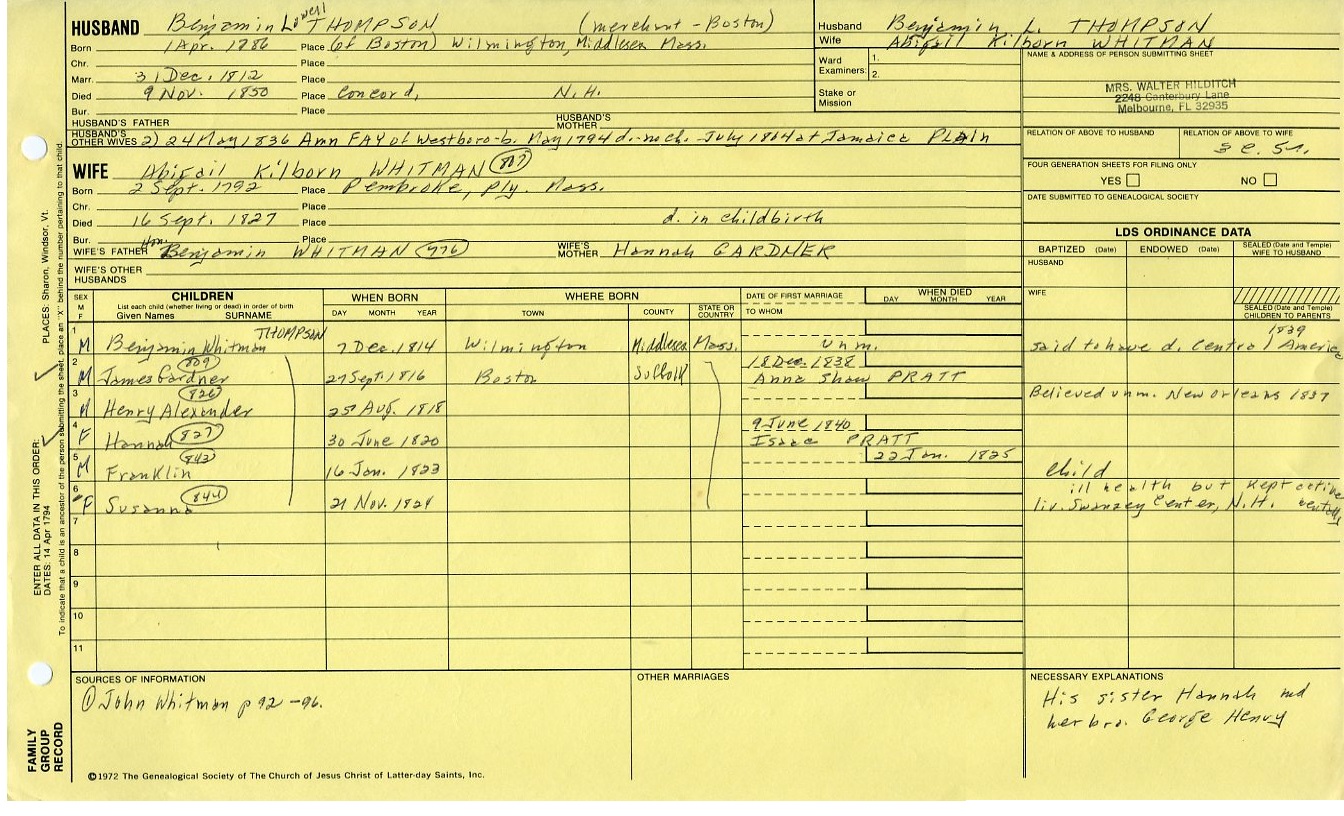 HUSBAND Benjamin Lowell THOMPSON (merchant - Boston)
Born 1 Apr. 1786 Place (of Boston) Wilmington, Middlesex Mass.
Chr. Place
Marr. 31 Dec. 1812 Place
Died 9 Nov. 1850 Place Concord, N.H.
Bur. Place
HUSBAND'S FATHER HUSBAND'S MOTHER
HUSBAND'S OTHER WIVES 2) 24 May 1836 Ann FAY of Westboro - b. May 1794 d. - no ch. July 1864 at Jamaica PLAin
WIFE Abigail Kilborn WHITMAN 807
Born 2 Sept. 1792 Place Pembroke, Ply. Mass.
Chr. Place
Died 16 Sept. 1827 Place d. in childbirth
Bur. Place
WIFE'S FATHER Hon. Benjamin WHITMAN 776 WIFE'S MOTHER Hannah GARDNER
WIFE'S OTHER HUSBANDS
Husband Benjamin L. THOMPSON
Wife Abigail Kilborn WHITMAN
Ward Examiners: 1.
2.
Stake or Mission
NAME & ADDRESS OF PERSON SUBMITTING SHEET
MRS. WALTER HILDITCH
2248 Canterbury Lane
Melbourne, FL 32935
RELATION OF ABOVE TO HUSBAND RELATION OF ABOVE TO WIFE
3 c. 5r.
FOUR GENERATION SHEETS FOR FILING ONLY
YES NO
DATE SUBMITTED TO GENEALOGICAL SOCIETY
LDS ORDINANCE DATA
BAPTIZED (Date) ENDOWED (Date) SEALED (Date and Temple) WIFE TO HUSBAND
HUSBAND
WIFE
SEALED (Date and Temple) CHILDREN TO PARENTS
SEX M F
CHILDREN
List each child (whether living or dead) in order of birth
Given Names SURNAME
WHEN BORN
DAY MONTH YEAR
WHERE BORN
TOWN COUNTY STATE OR COUNTRY
DATE OF FIRST MARRIAGE
TO WHOM
WHEN DIED
DAY MONTH YEAR
1 M Benjamin Whitman THOMPSON 7 Dec. 1814 Wilmington Middlesex Mass. unm. 1839 said to have d. Central America
2 M James Gardner 809 27 Sept. 1816 Boston Suffolk 18 Dec. 1838 Anna Shaw PRATT
3 M Henry Alexander 826 25 Aug. 1818 Believed unm. New Orleans 1837
4 F Hannah 827 30 June 1820 9 June 1840 Isaac PRATT
5 M Franklin 843 16 Jan. 1823 22 Jan. 1825 child
6 F Susanna 844 21 Nov. 1824 ill health but kept active
liv. Swanzey Center, N.H.
7
8
9
10
11
SOURCES OF INFORMATION
① John Whitman p 92 - 96.
OTHER MARRIAGES
NECESSARY EXPLANATIONS
His sister Hannah md
her bro. George Henry
©1972 The Genealogical Society of The Church of Jesus Christ of Latter-day Saints, Inc.
FAMILY GROUP RECORD
ENTER ALL DATA IN THIS ORDER:
DATES: 14 Apr 1794 PLACES: Sharon, Windsor, Vt.
To indicate that a child is an ancestor of the person submitting the sheet, place an "X" behind the number pertaining to that child.